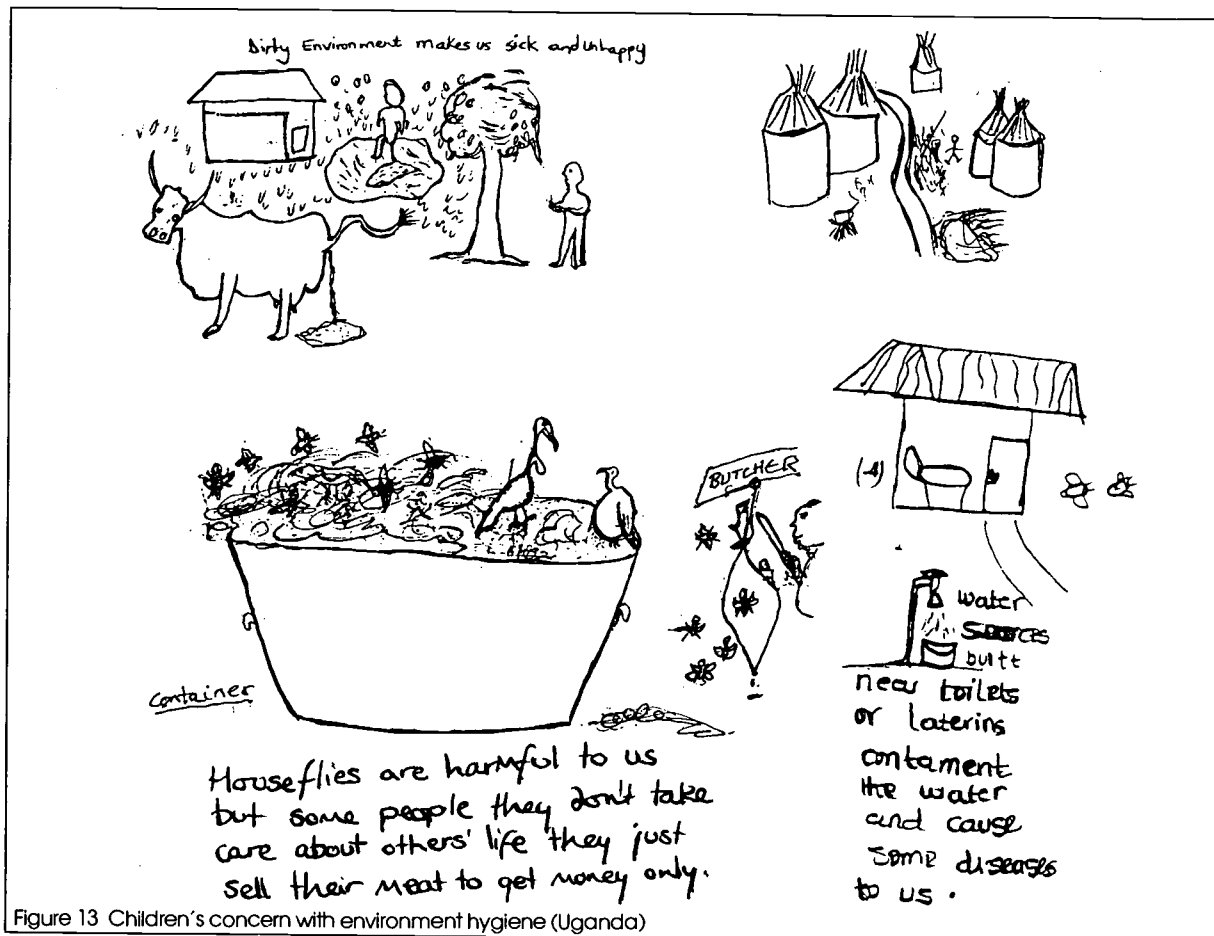 Dirty Environment makes us sick and unhappy
BUTCHER
(-4)
Container
Houseflies are harmful to us
but some people they don't take
care about others' life they just
sell their meat to get money only.
water
sources
built
near toilets
or laterins
contament
the water
and cause
some diseases
to us.
Figure 13 Children's concern with environment hygiene (Uganda)